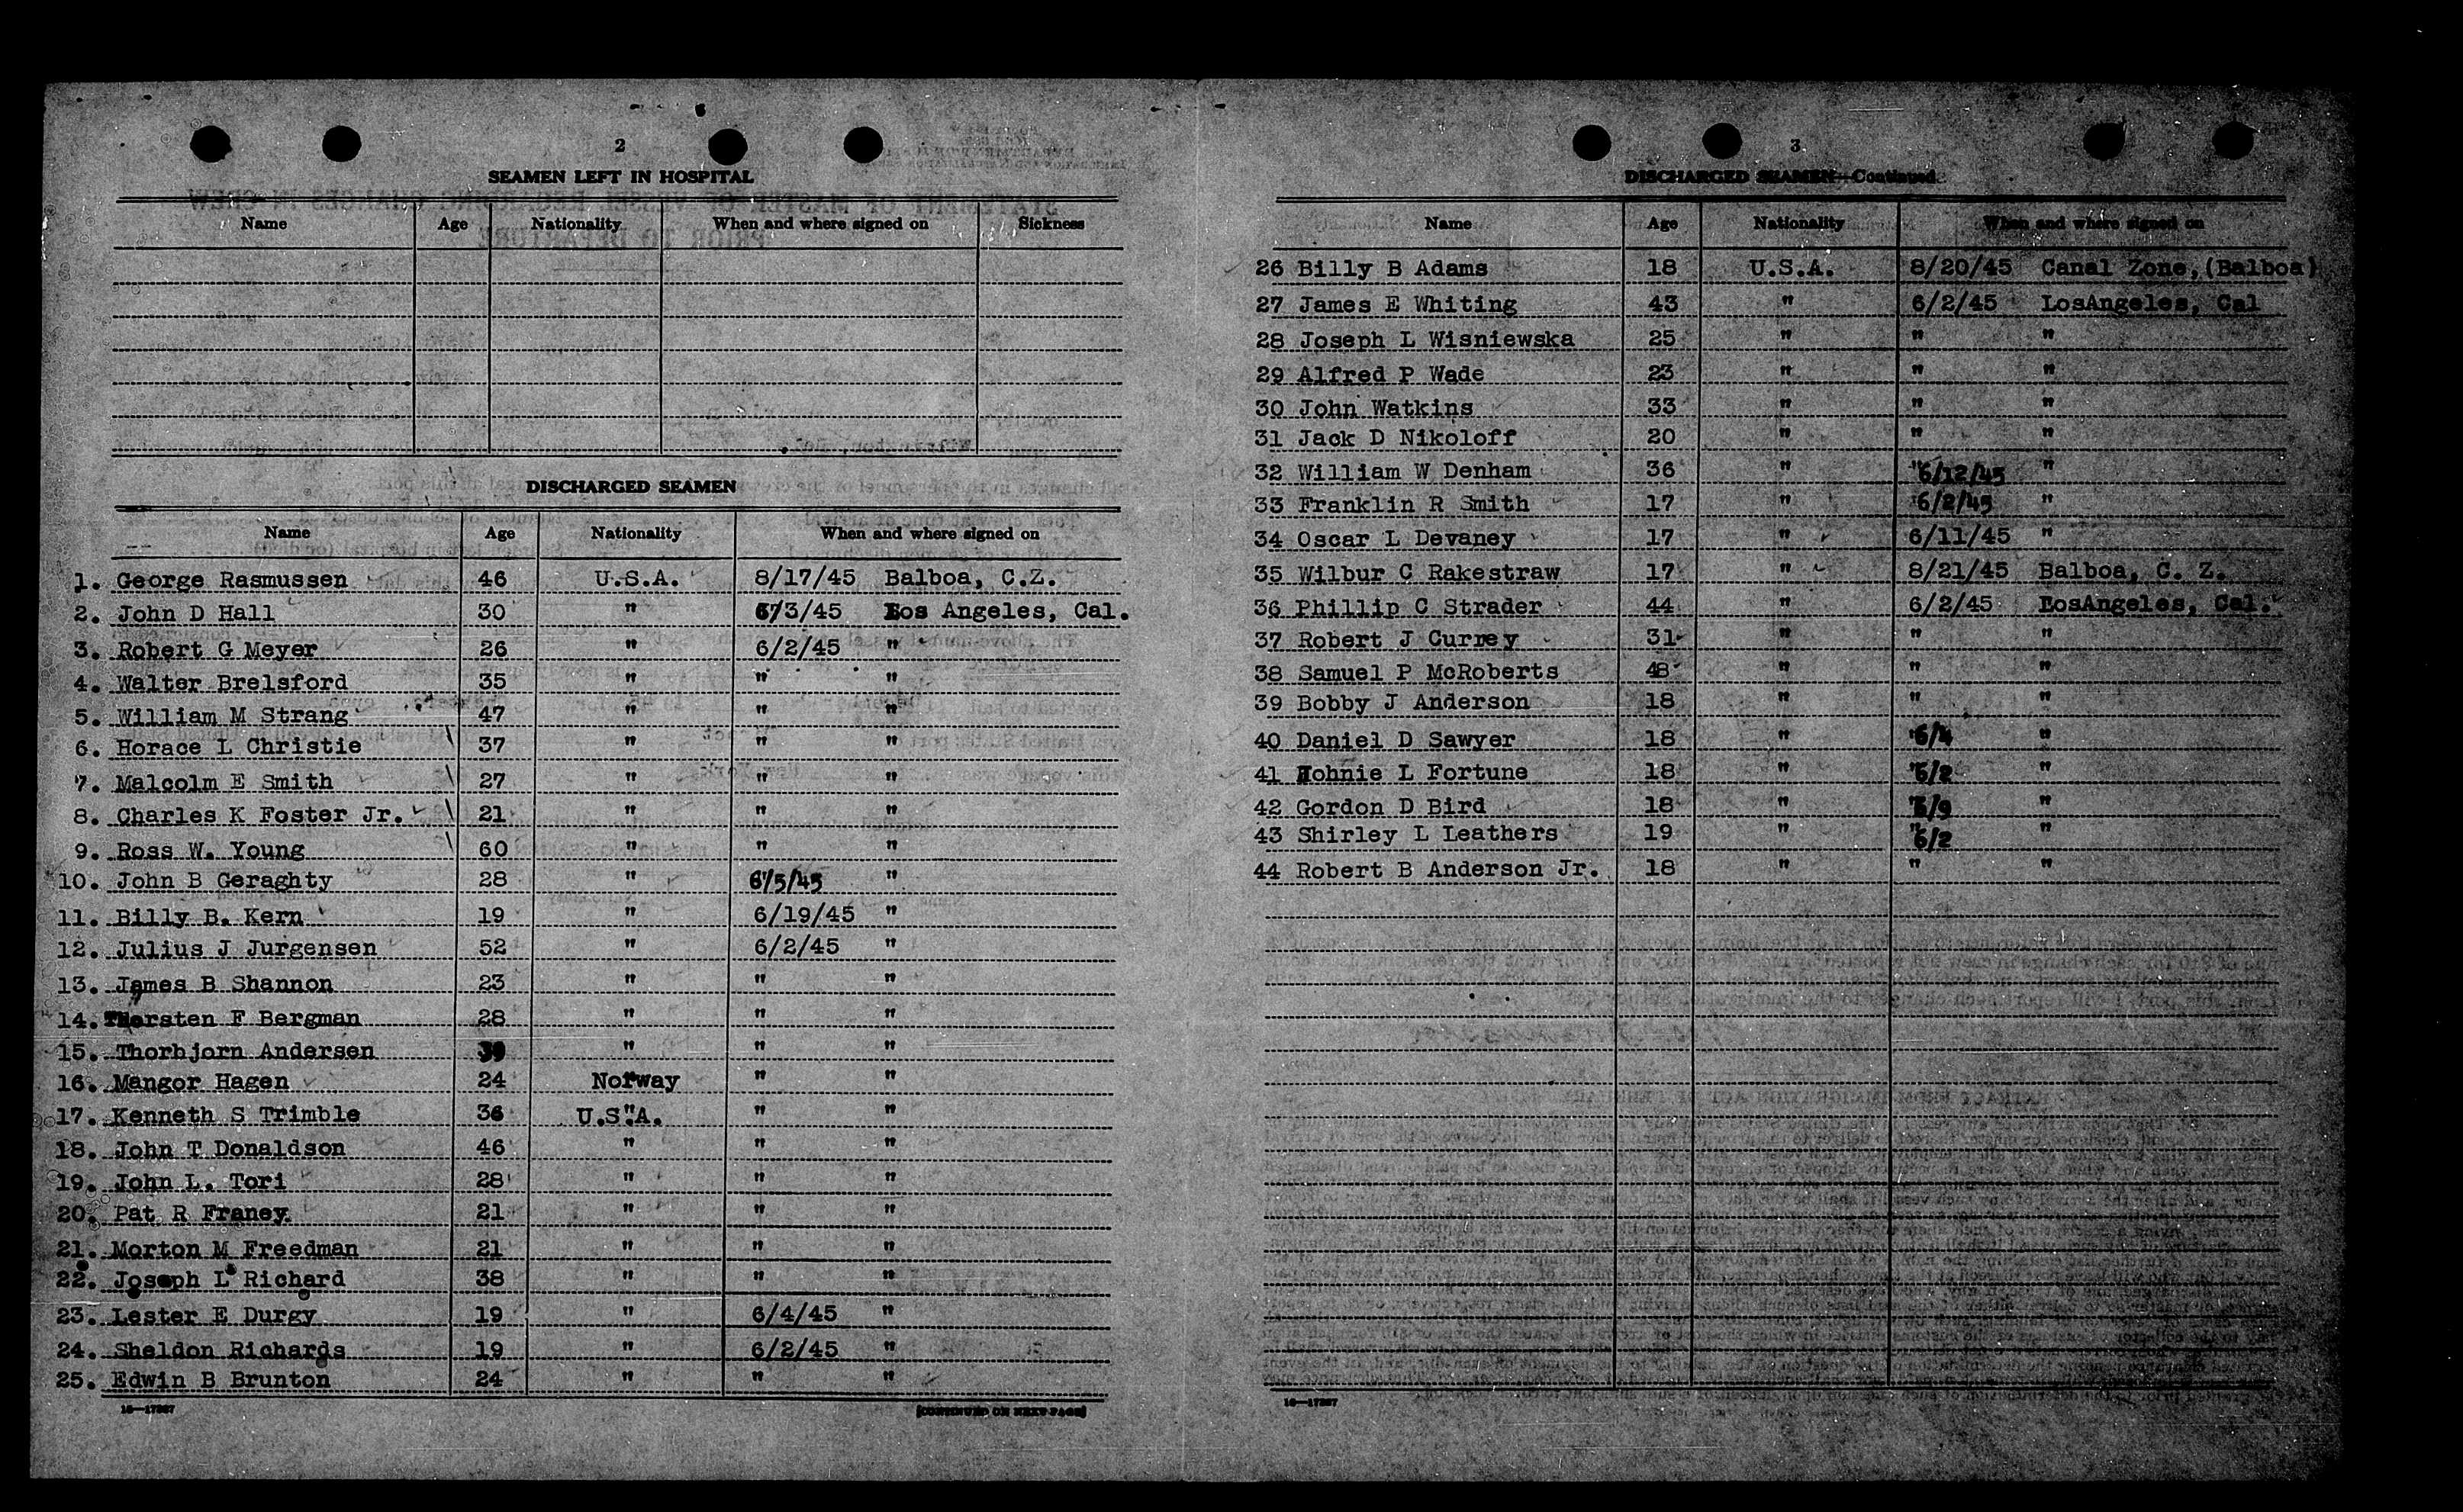 2
SEAMEN LEFT IN HOSPITAL
Name Age Nationality When and where signed on Sickness
DISCHARGED SEAMEN
Name Age Nationality When and where signed on
1. George Rasmussen 46 U.S.A. 8/17/45 Balboa, C.Z.
2. John D Hall 30 " 6/3/45 Los Angeles, Cal.
3. Robert G Meyer 26 " 6/2/45 "
4. Walter Brelsford 35 " " "
5. William M Strang 47 " " "
6. Horace L Christie 37 " " "
7. Malcolm E Smith 27 " " "
8. Charles K Foster Jr. 21 " " "
9. Ross W. Young 60 " " "
10. John B Geraghty 28 " 6/5/45 "
11. Billy B. Kern 19 " 6/19/45 "
12. Julius J Jurgensen 52 " 6/2/45 "
13. James B Shannon 23 " " "
14. Thorsten F Bergman 28 " " "
15. Thorbjorn Andersen 39 " " "
16. Mangor Hagen 24 Norway " "
17. Kenneth S Trimble 36 U.S.A. " "
18. John T Donaldson 46 " " "
19. John L. Tori 28 " " "
20. Pat R Franey 21 " " "
21. Morton M Freedman 21 " " "
22. Joseph L Richard 38 " " "
23. Lester E Durgy 19 " 6/4/45 "
24. Sheldon Richards 19 " 6/2/45 "
25. Edwin B Brunton 24 " " "
16—17287 [CONTINUED ON NEXT PAGE]
3
DISCHARGED SEAMEN—Continued
Name Age Nationality When and where signed on
26 Billy B Adams 18 U.S.A. 8/20/45 Canal Zone,(Balboa)
27 James E Whiting 43 " 6/2/45 LosAngeles, Cal
28 Joseph L Wisniewska 25 " " "
29 Alfred P Wade 23 " " "
30 John Watkins 33 " " "
31 Jack D Nikoloff 20 " " "
32 William W Denham 36 " 6/12/45 "
33 Franklin R Smith 17 " 6/2/45 "
34 Oscar L Devaney 17 " 6/11/45 "
35 Wilbur C Rakestraw 17 " 8/21/45 Balboa, C. Z.
36 Phillip C Strader 44 " 6/2/45 LosAngeles, Cal.
37 Robert J Currey 31 " " "
38 Samuel P McRoberts 48 " " "
39 Bobby J Anderson 18 " " "
40 Daniel D Sawyer 18 " 6/4 "
41 Johnie L Fortune 18 " 6/2 "
42 Gordon D Bird 18 " 6/9 "
43 Shirley L Leathers 19 " 6/2 "
44 Robert B Anderson Jr. 18 " " "
16—17287